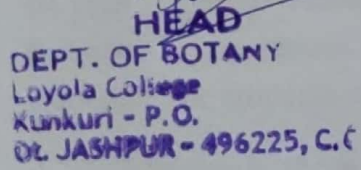 HEAD
DEPT. OF BOTANY
Loyola College
Kunkuri - P.O.
Dt. JASHPUR - 496225, C.G